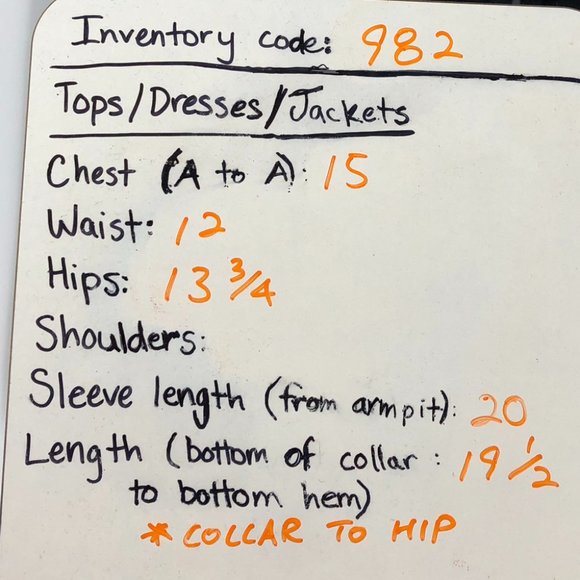 Inventory code: 982
Tops/Dresses/Jackets
Chest (A to A): 15
Waist: 12
Hips: 13 3/4
Shoulders:
Sleeve length (from armpit): 20
Length (bottom of collar : 19 1/2
to bottom hem)
* COLLAR TO HIP